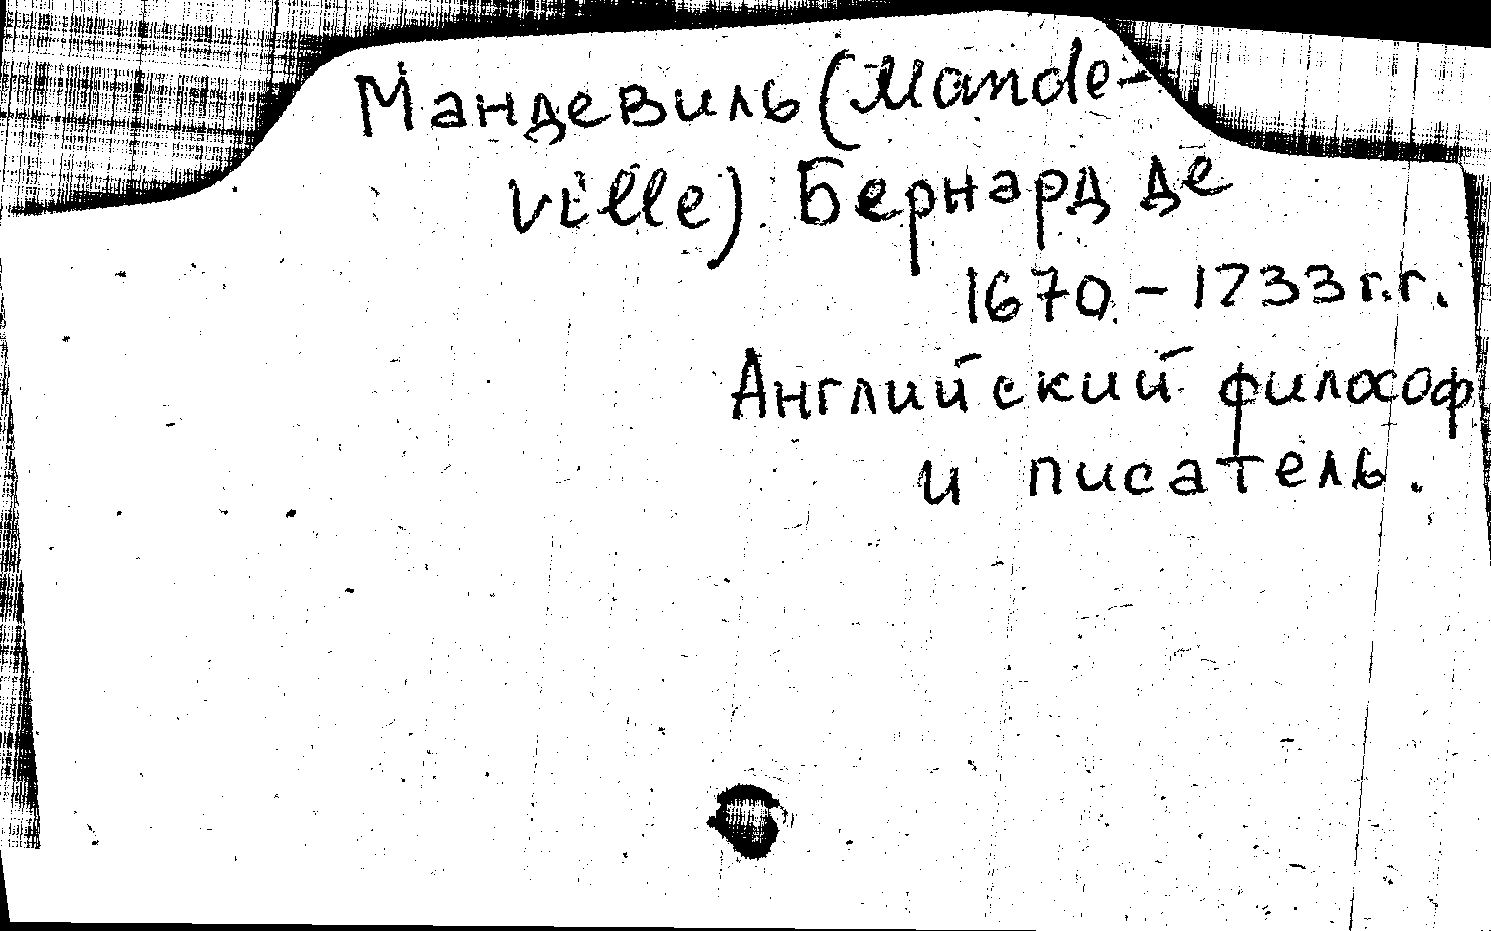 Мандевиль (Mande-
ville) Бернард де
1670 - 1733 г.г.
Английский философ
и писатель.